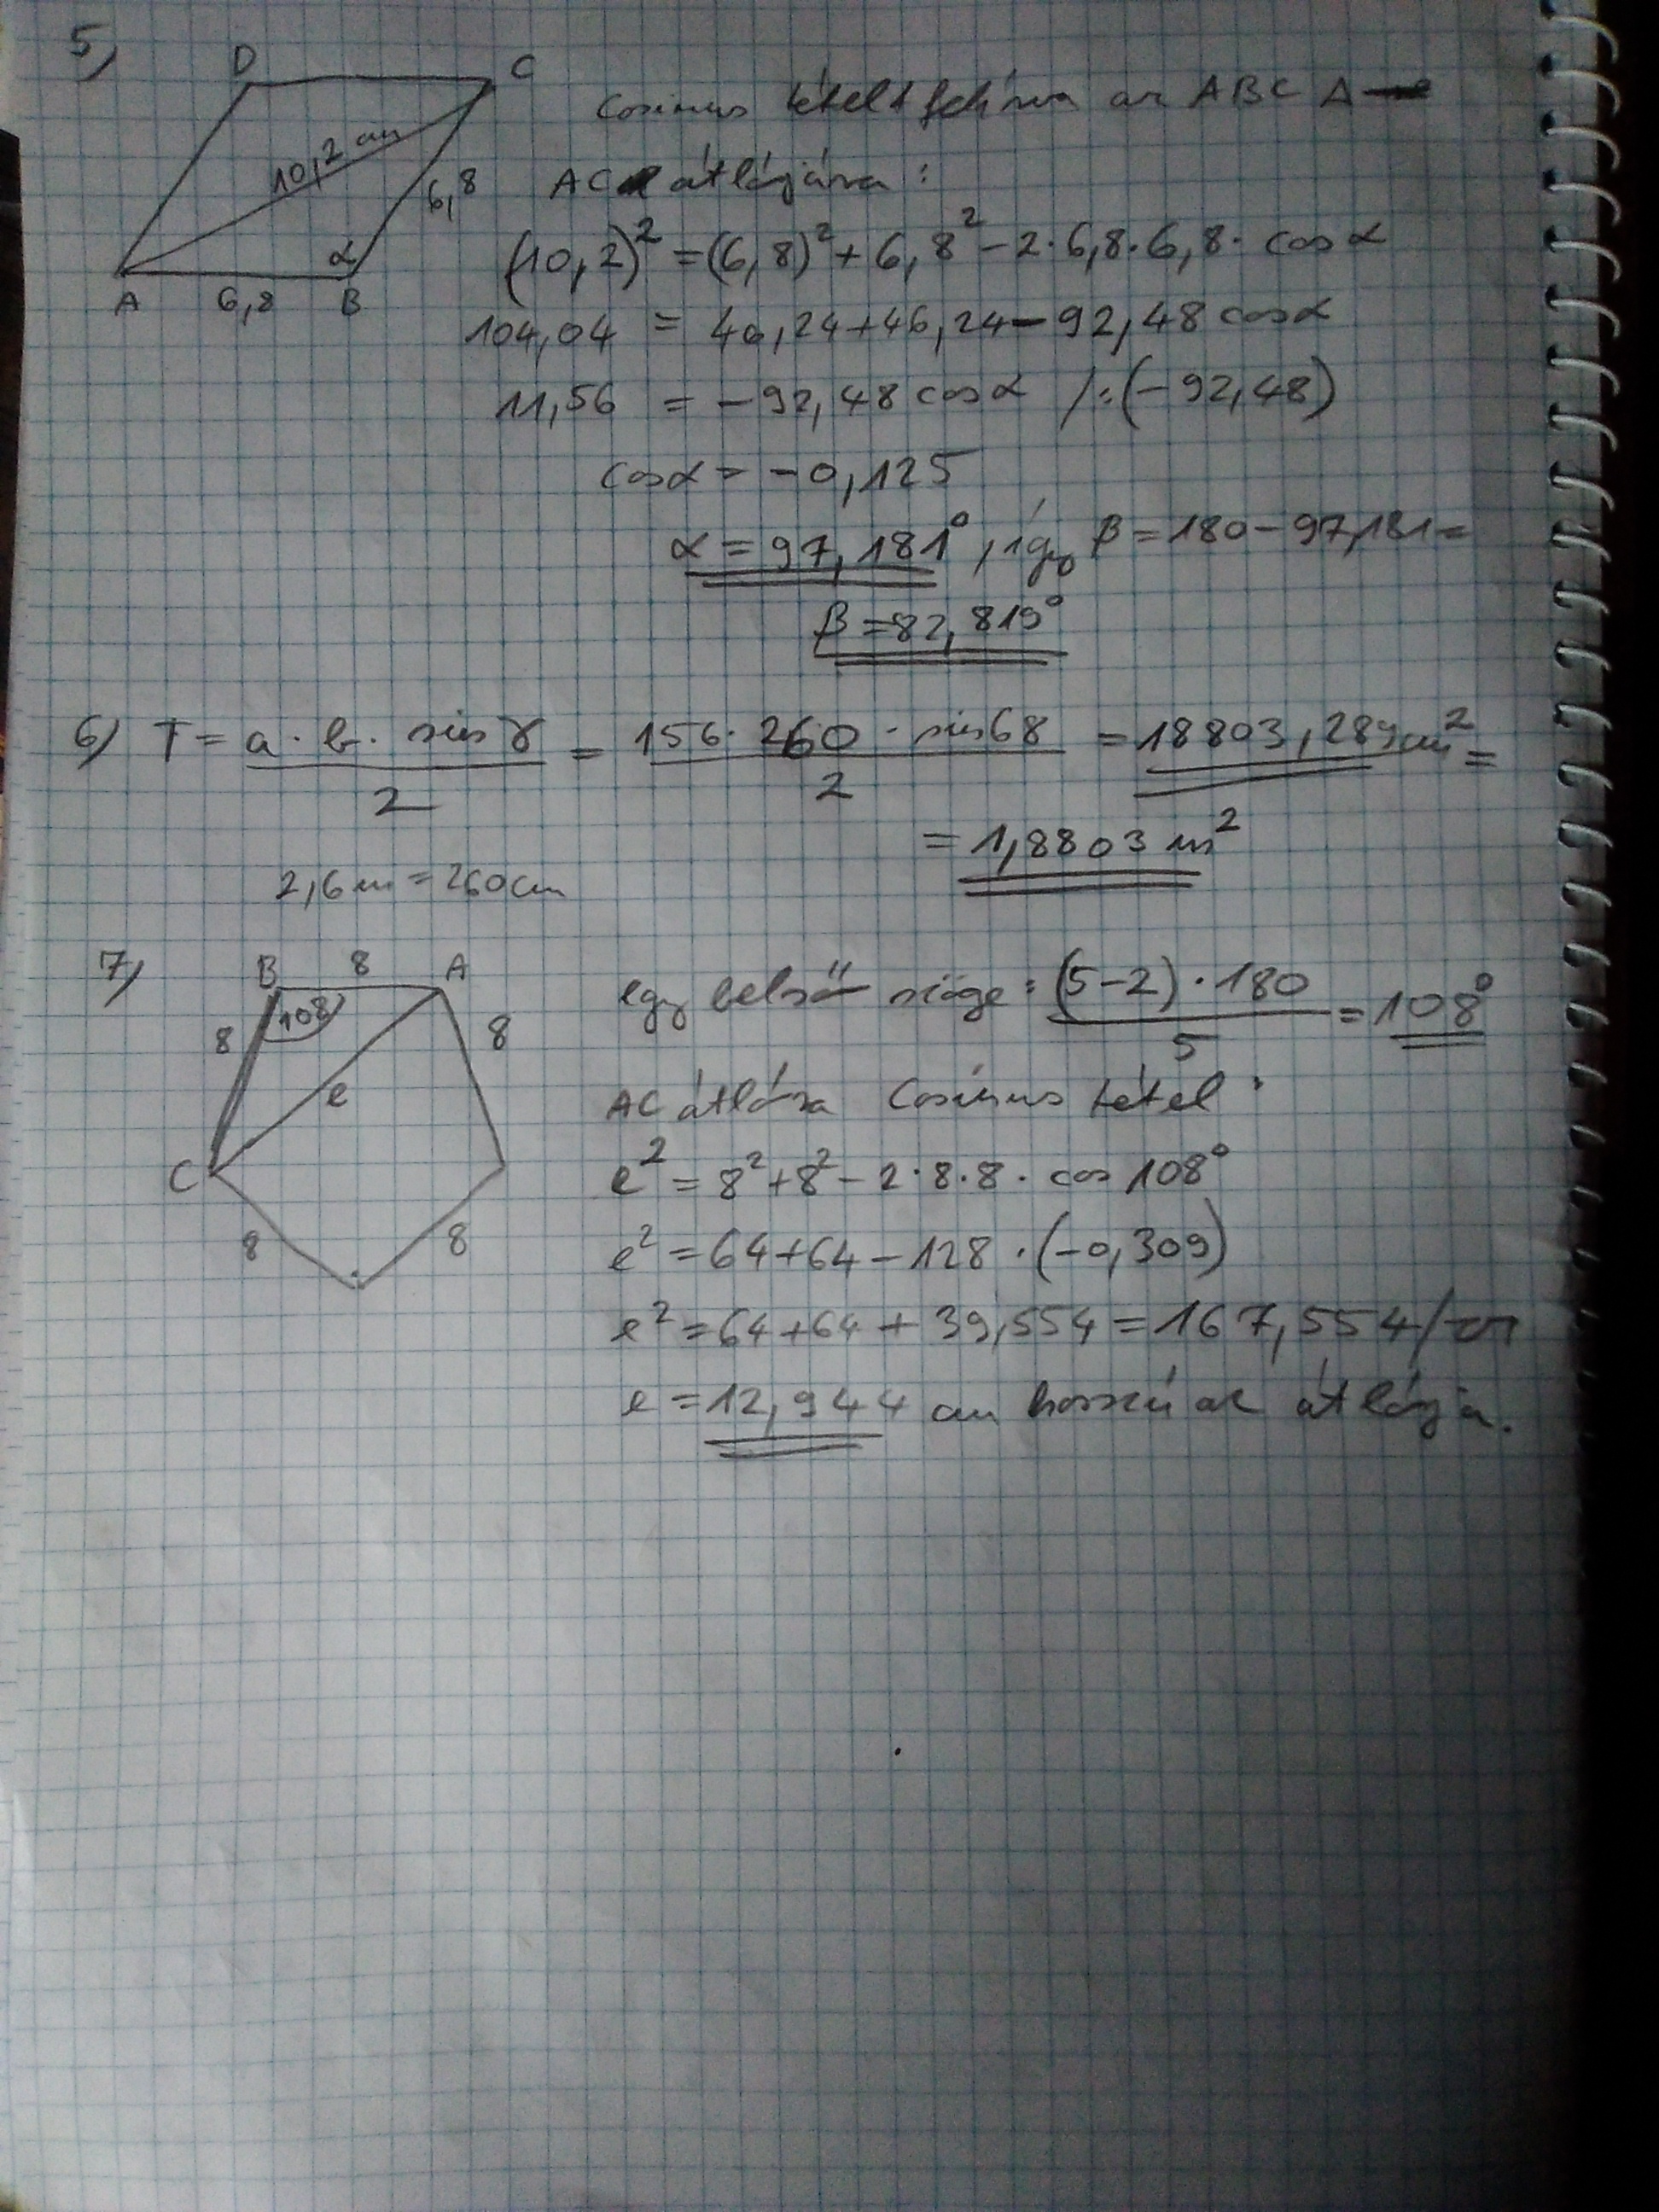 5)
D C
10,2 cm
6,8
α
A 6,8 B
Cosinus tételt felírva az ABC Δ
AC átlójára:
(10,2)² = (6,8)² + 6,8² - 2·6,8·6,8· cos α
104,04 = 46,24+46,24-92,48 cosα
11,56 = -92,48 cosα /:(-92,48)
cosα = -0,125
α = 97,181°, így β = 180-97,181=
β = 82,819°
6) T = a·b·sin γ / 2 = 156·260·sin68 / 2 = 18803,289cm² =
= 1,8803 m²
2,6m = 260cm
7)
B 8 A
108
8 8
e
C
8 8
egy belső szöge: (5-2)·180 / 5 = 108°
AC átlóra Cosinus tétel:
e² = 8²+8²-2·8·8· cos 108°
e² = 64+64-128·(-0,309)
e² = 64+64+39,554 = 167,554/√
e = 12,944 cm hosszú az átlója.